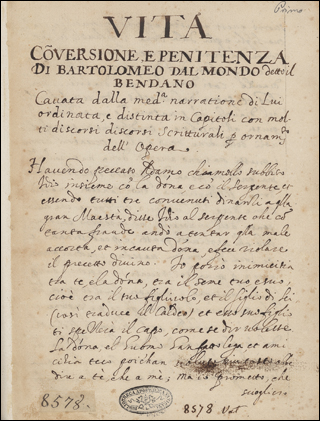 Primo
VITA
CÕVERSIONE, E PENITENZA
DI BARTOLOMEO DAL MONDO detto il
BENDANO
Cavata dalla med.ª narratione di Lui
ordinata, e distinta in Capitoli con mol
ti discorsi discorsi Scritturali p ornam.to
dell' Opera
Havendo peccato Adamo chiamollo subbito
Iddio insieme cò la dona, e cò il Serpente, et
essendo tutti tre convenuti dinanti a
gran Maestà, disse Iddio al serpente che cò
tanta fraude andò a tentar
accorta, et incauta dona e violare
il precetto divino. Io porrò inimicitia
tra te, e la dona, tra il seme tuo e suo,
cioè tra il tuo figliuolo, et il figlio di lei
(così traduce il Caldeo) et esso suo figlio
ti il capo, come se dir volesse
la dona, el lega et ami
citia teco poiche
dirà a tè che a mè; Ma io prometto, che
8578.
8578 Vat